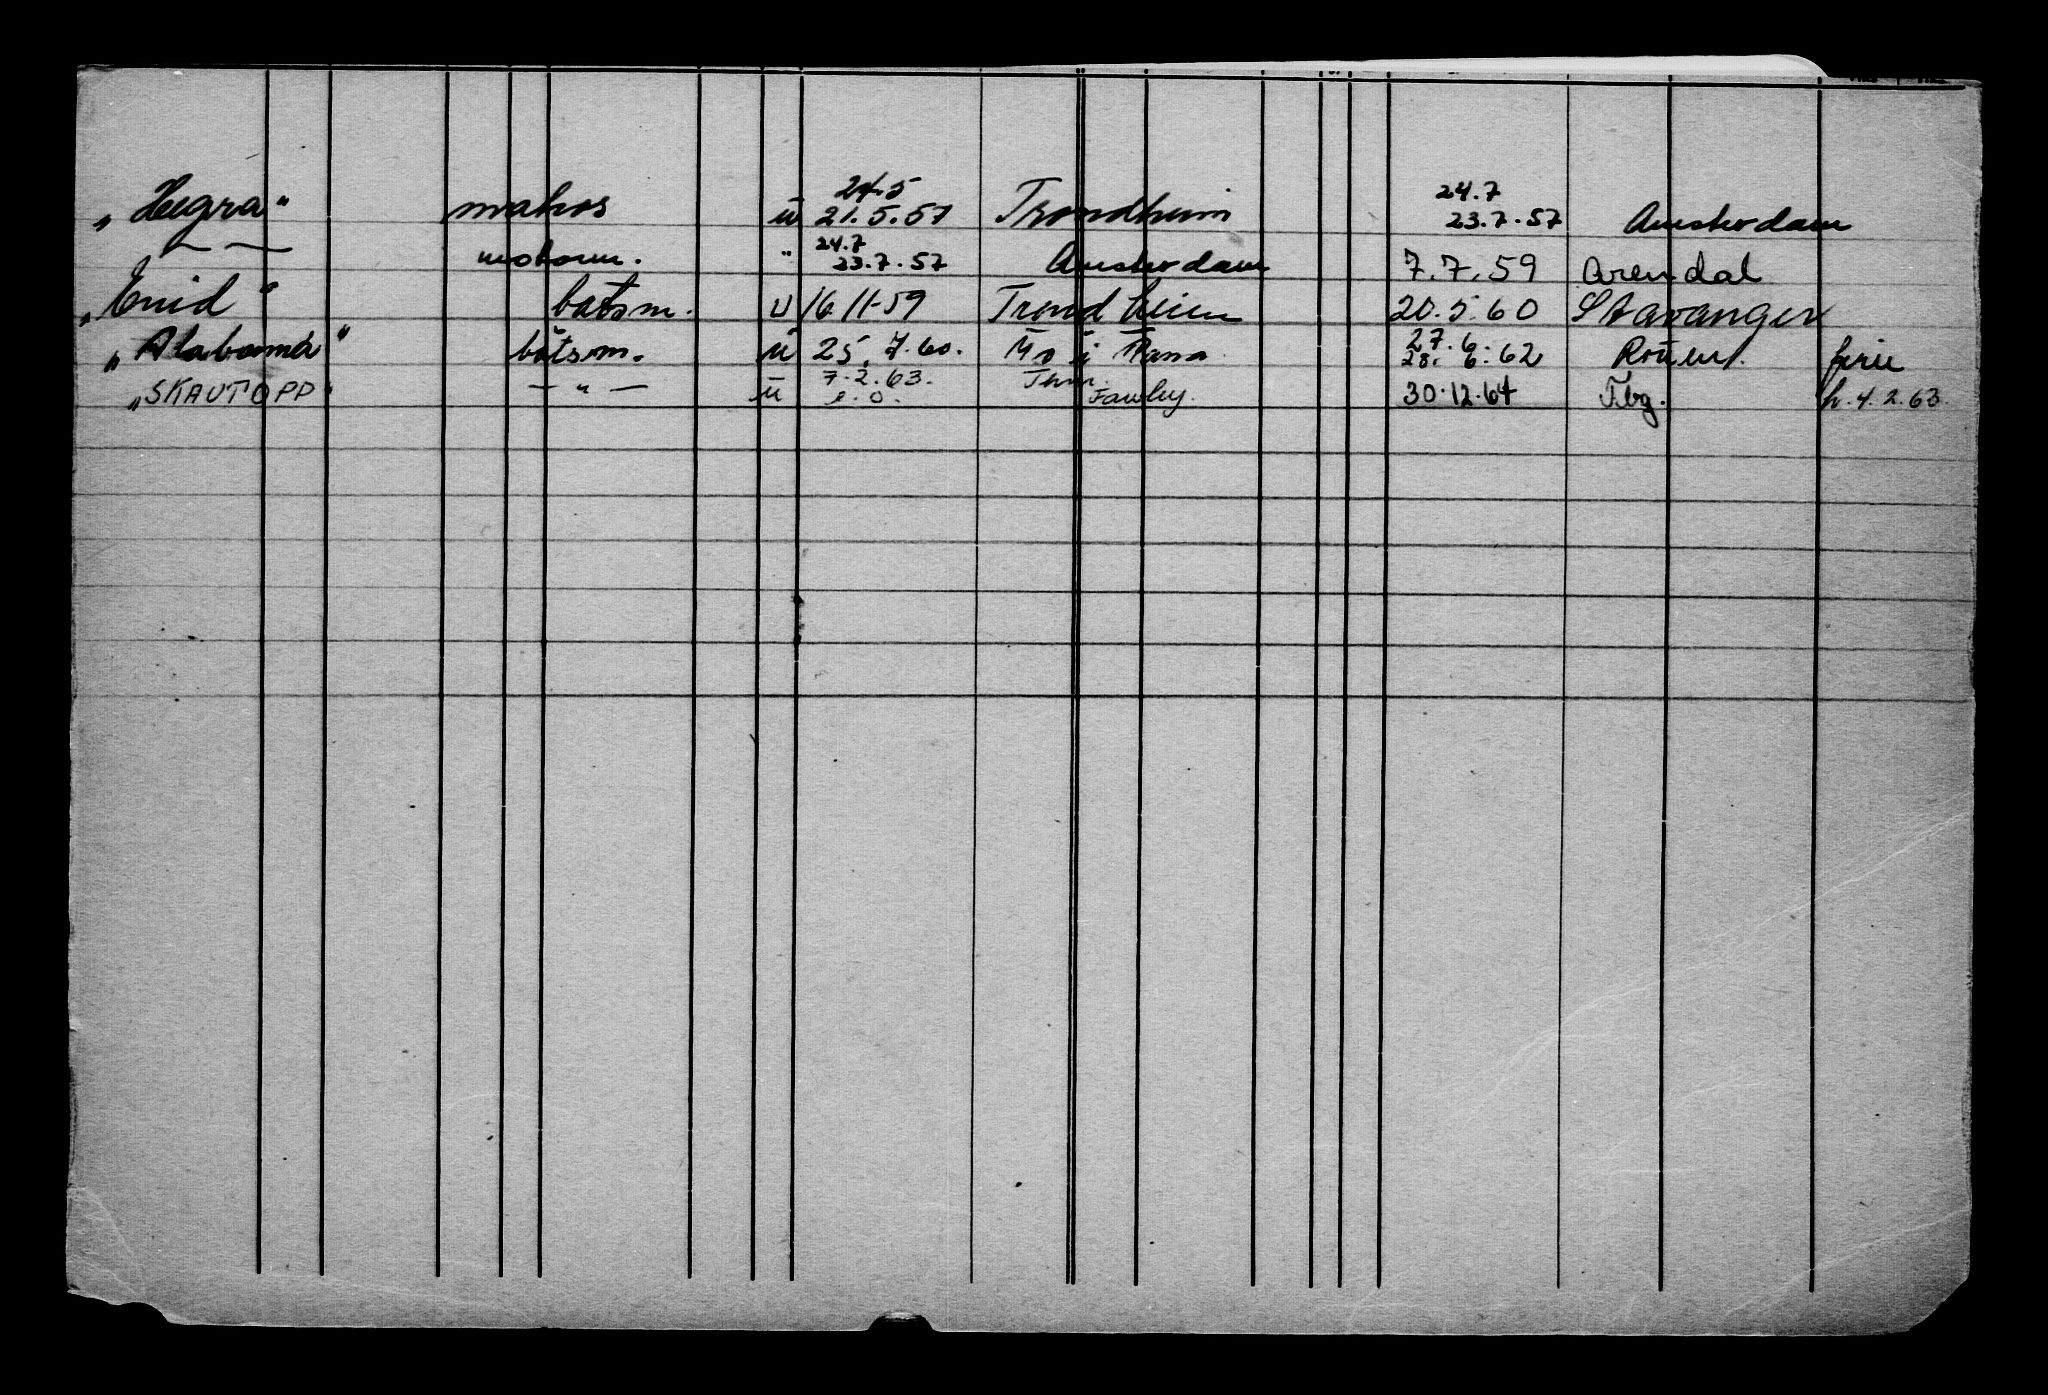 „Hegra“ matros u 24.5 21.5.57 Trondheim 24.7 23.7.57 Amsterdam
— — motorm. " 24.7 23.7.57 Amsterdam 7.7.59 Arendal
„Enid“ båtsm. u 16.11-59 Trondheim 20.5.60 Stavanger
„Alabama“ båtsm. u 25.7.60. Mo i Rana 27.6. 28.6.62 Rouen. ferie
„SKAUTOPP“ — " — u 7.2.63. Fawley. 30.12.64 Tbg. h. 4.2.63.